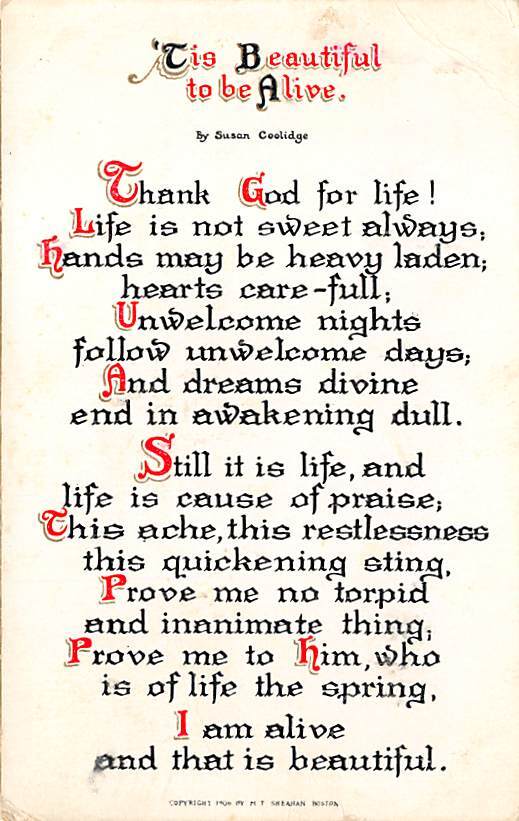 'Tis Beautiful
to be Alive.
By Susan Coolidge
Thank God for life!
Life is not sweet always;
Hands may be heavy laden;
hearts care-full;
Unwelcome nights
follow unwelcome days;
And dreams divine
end in awakening dull.
Still it is life, and
life is cause of praise;
This ache, this restlessness
this quickening sting,
Prove me no torpid
and inanimate thing;
Prove me to Him, who
is of life the spring,
I am alive
and that is beautiful.
COPYRIGHT 1906 BY M T SHEAHAN BOSTON